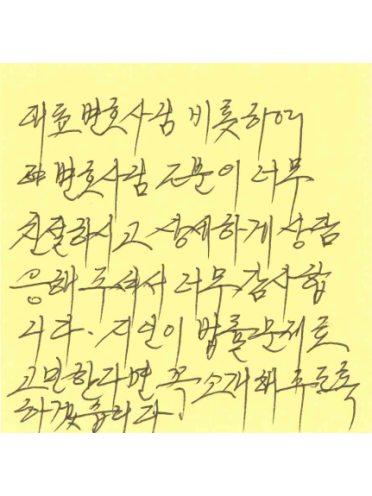 대표변호사님 비롯하여
변호사님 모두분이 너무
친절하시고 상세하게 상담
응해 주셔서 너무 감사합
니다. 지인이 법률문제로
고민한다면 꼭 소개해 주도록
하겠습니다.